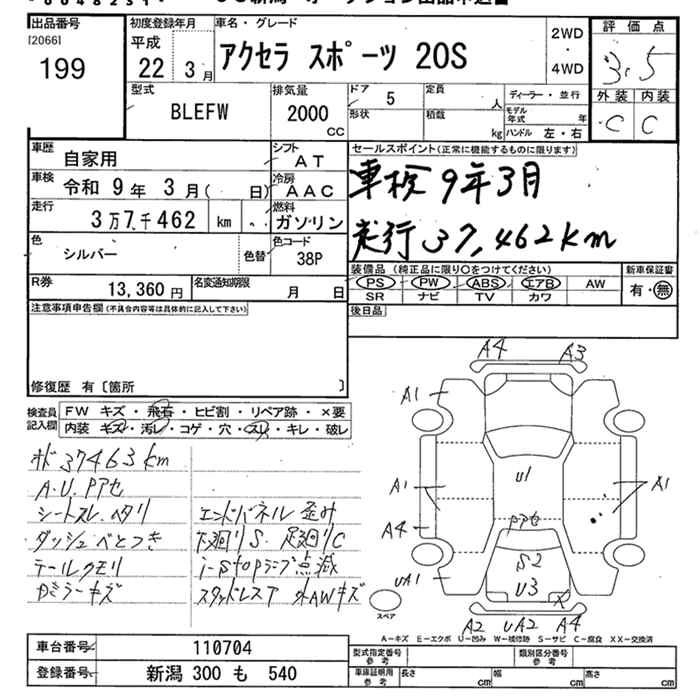 出品番号
[2066]
199
初度登録年月
平成
22 3月
車名・グレード
アクセラ スポーツ 20S
2WD
・
4WD
評価点
3.5
外装 内装
C C
型式
BLEFW
排気量
2000
CC
ドア 5
形状
定員 人
積載 kg
ディーラー・並行
モデル年式 年
ハンドル 左・右
車歴 自家用
シフト AT
車検 令和 9年 3月( 日)
冷房 AAC
走行 3万7千462 km
燃料 ガソリン
色 シルバー
色替
色コード 38P
R券 13,360円
名変通知期限 月 日
セールスポイント(正常に機能するものに限ります)
車検 9年3月
走行 37,462km
装備品 (純正品に限り○をつけてください)
PS PW ABS エアB AW
SR ナビ TV カワ
新車保証書
有・無
後日品
注意事項申告欄 (不具合内容等は具体的に記入して下さい)
修復歴 有〔箇所 〕
検査員記入欄
FW キズ・飛石・ヒビ割・リペア跡・×要
内装 キズ・汚レ・コゲ・穴・スリ・キレ・破レ
37463km
A.U.PPセ
シートスレ.ヘタリ
ダッシュべとつき
テールクモリ
ミラーキズ
エンドパネル歪み
下廻りS 足廻りC
i-stopランプ点滅
スタッドレスア 外AWキズ
A4 A3
A1
A1
A4
UA1
U1
PPセ
S2
U3
X
A1
A2 UA2 A4
スペア
A-キズ E-エクボ U-凹み W-補修跡 S-サビ C-腐食 XX-交換済
車台番号 110704
登録番号 新潟 300 も 540
型式指定番号
参考
類別区分番号
参考
車庫証明用
参考
長さ cm
幅 cm
高さ cm